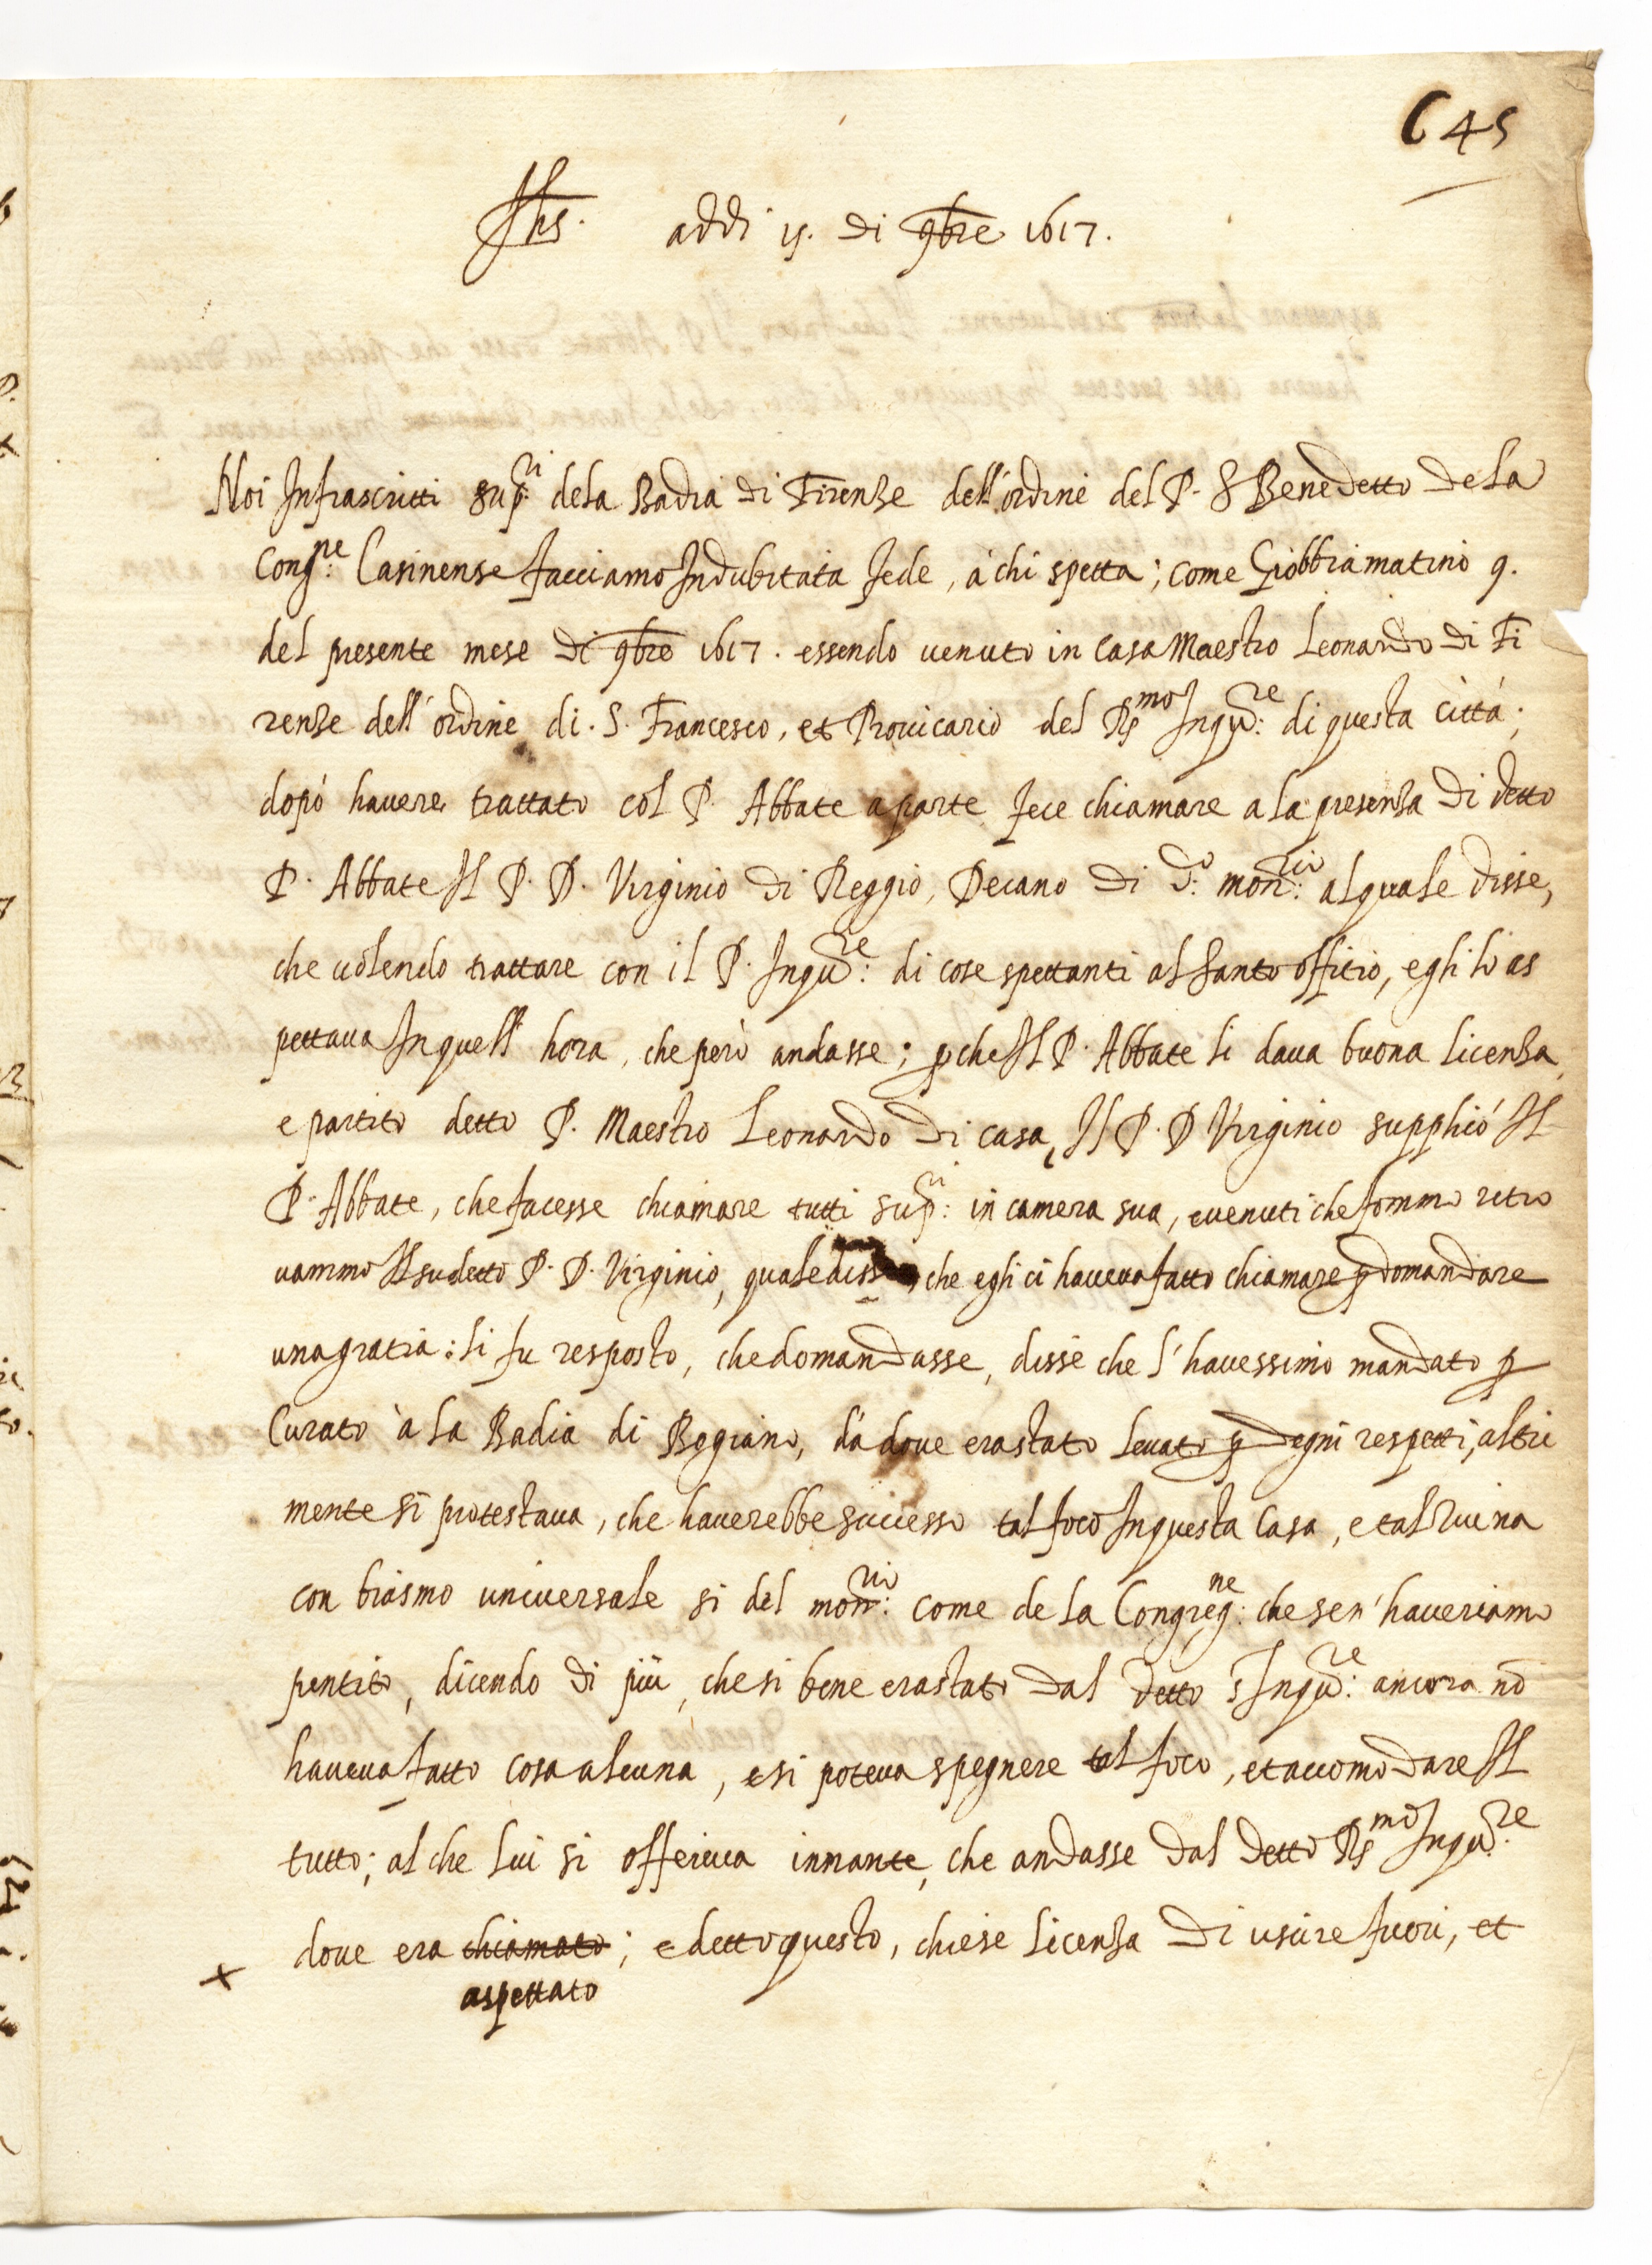 C 45
Jhs. addi 15. di 9bre 1617.
Noi Infrascritti supri. dela Badia di Firenze dell'ordine del P. S Benedetto de la
Congne. Casinense facciamo Indubitata fede, à chi spetta; come Giobbia matino 9.
del presente mese di 9bre 1617. essendo uenuto in casa Maestro Leonardo di Fi
renze dell'ordine di. S. Francesco, et Prouicario del Rmo Inqure: di questa città;
dopò hauere trattato col P. Abbate a parte fece chiamare a la presenza di detto
P. Abbate Il P. D. Virginio di Reggio, Decano di do: monrio: al quale disse,
che uolendo trattare con il P. Inqure: di cose spettanti al santo offitio, egli lo as
pettaua In quell' hora, che però andasse; pche Il P. Abbate li daua buona licenza,
e partito detto P. Maestro Leonardo di casa, Il P. D Virginio supplicò Il
P. Abbate, che facesse chiamare tutti supri: in camera sua, e uenuti che fommo ritro
uammo Il sudetto P. D. Virginio, quale disse, che egli ci haueua fatto chiamare p domandare
una gratia: li fu resposto, che domandasse, disse che l'hauessimo mandato p
Curato à la Badia di Bogiano, dà doue era stato leuato p degni respetti, altri
mente si protestaua, che hauerebbe successo tal foco In questa casa, e tal ruina
con biasmo uniuersale si del monrio: come de la Congregne: che sen'haueriamo
pentito, dicendo di più, che si bene era stato dal detto s Inqure: ancora nõ
haueua fatto cosa alcuna, e si poteua spegnere tal foco, et accomodare Il
tutto; al che lui si offeriua innante, che andasse dal detto Rmo Inqure:
doue era chiamato; e detto questo, chiese licenza di uscire fuori, et
x aspettato